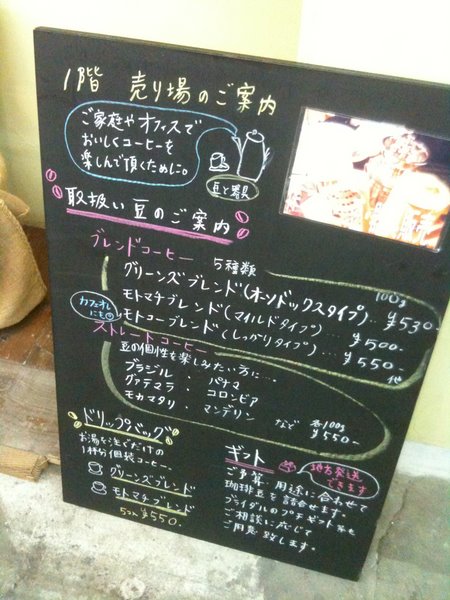 1階 売り場のご案内
ご家庭や オフィスで
おいしくコーヒーを
楽しんで頂くために。
豆と器具
取扱い 豆のご案内
ブレンドコーヒー 5種類
100g
グリーンズ ブレンド(オーソドックスタイプ)… ¥530-
モトマチ ブレンド(マイルドタイプ)… ¥500-
モトコー ブレンド(しっかりタイプ)… ¥550-
他
カフェオレ
にも
ストレートコーヒー
豆の個性を楽しみたい方に…
ブラジル ・ パナマ
グァテマラ ・ コロンビア
モカマタリ ・ マンデリン など 各100g
¥550-
ドリップバッグ
お湯を注ぐだけの
1杯分個装コーヒー
グリーンズブレンド
モトマチブレンド
5コ入 ¥550.
ギフト
地方発送
できます
ご予算、用途に合わせて
珈琲豆を詰合せます。
ブライダルのプチギフト等も
ご相談に応じて
ご用意致します。